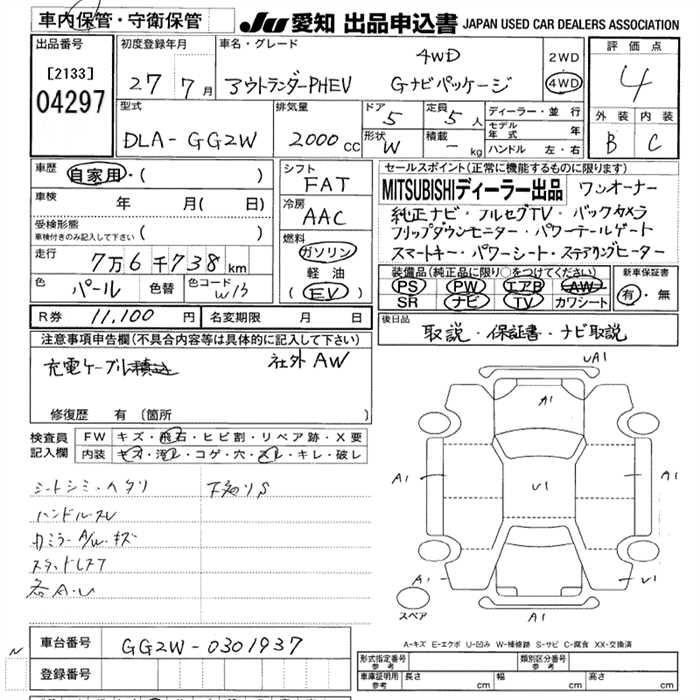 車内保管・守衛保管
JU 愛知 出品申込書 JAPAN USED CAR DEALERS ASSOCIATION
出品番号
[2133]
04297
初度登録年月
27 7月
車名・グレード
アウトランダーPHEV
4WD
Gナビパッケージ
2WD
4WD
評価点
4
外装 内装
B C
型式
DLA-GG2W
排気量
2000cc
ドア
5
形状
W
定員
5人
積載
- kg
ディーラー・並行
モデル年式 年
ハンドル 左・右
車歴
自家用・( )
車検
年 月( 日)
受検形態
車検付きのみ記入して下さい ( )
走行
7万6千738km
色
パール
色替
色コード
W13
シフト
FAT
冷房
AAC
燃料
ガソリン
軽油
(EV)
セールスポイント(正常に機能するものに限ります)
MITSUBISHIディーラー出品 ワンオーナー
純正ナビ・フルセグTV・バックカメラ
フリップダウンモニター・パワーテールゲート
スマートキー・パワーシート・ステアリングヒーター
装備品(純正品に限り○をつけてください)
PS PW エアB AW
SR ナビ TV カワシート
新車保証書
有・無
R券 11,100円
名変期限 月 日
後日品
取説・保証書・ナビ取説
注意事項申告欄(不具合内容等は具体的に記入して下さい)
充電ケーブル積込 社外AW
修復歴 有(箇所 )
検査員記入欄
FW キズ・飛石・ヒビ割・リペア跡・X要
内装 キズ・汚レ・コゲ・穴・スレ・キレ・破レ
シートシミ・ヘタリ
下廻りS
ハンドルスレ
カミラーA/W・キズ
スタッドレス7
各A・U
UA1
A1
A1
U1
A1
A1
U1
A1
スペア
A-キズ E-エクボ U-凹み W-補修跡 S-サビ C-腐食 XX-交換済
N
車台番号
GG2W-0301937
登録番号
形式指定番号
参考
類別区分番号
参考
車庫証明用
参考
長さ cm
幅 cm
高さ cm